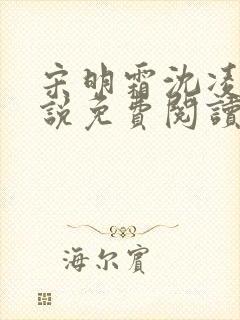 宋明霜沈凌
說免費閱讀
海尔宾